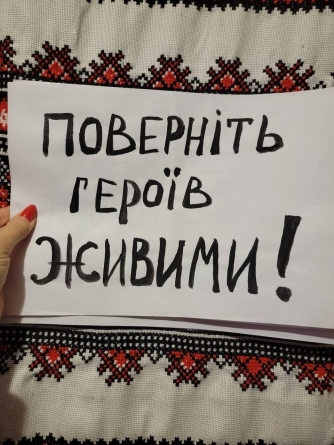 ПОВЕРНІТЬ
ГЕРОЇВ
ЖИВИМИ!